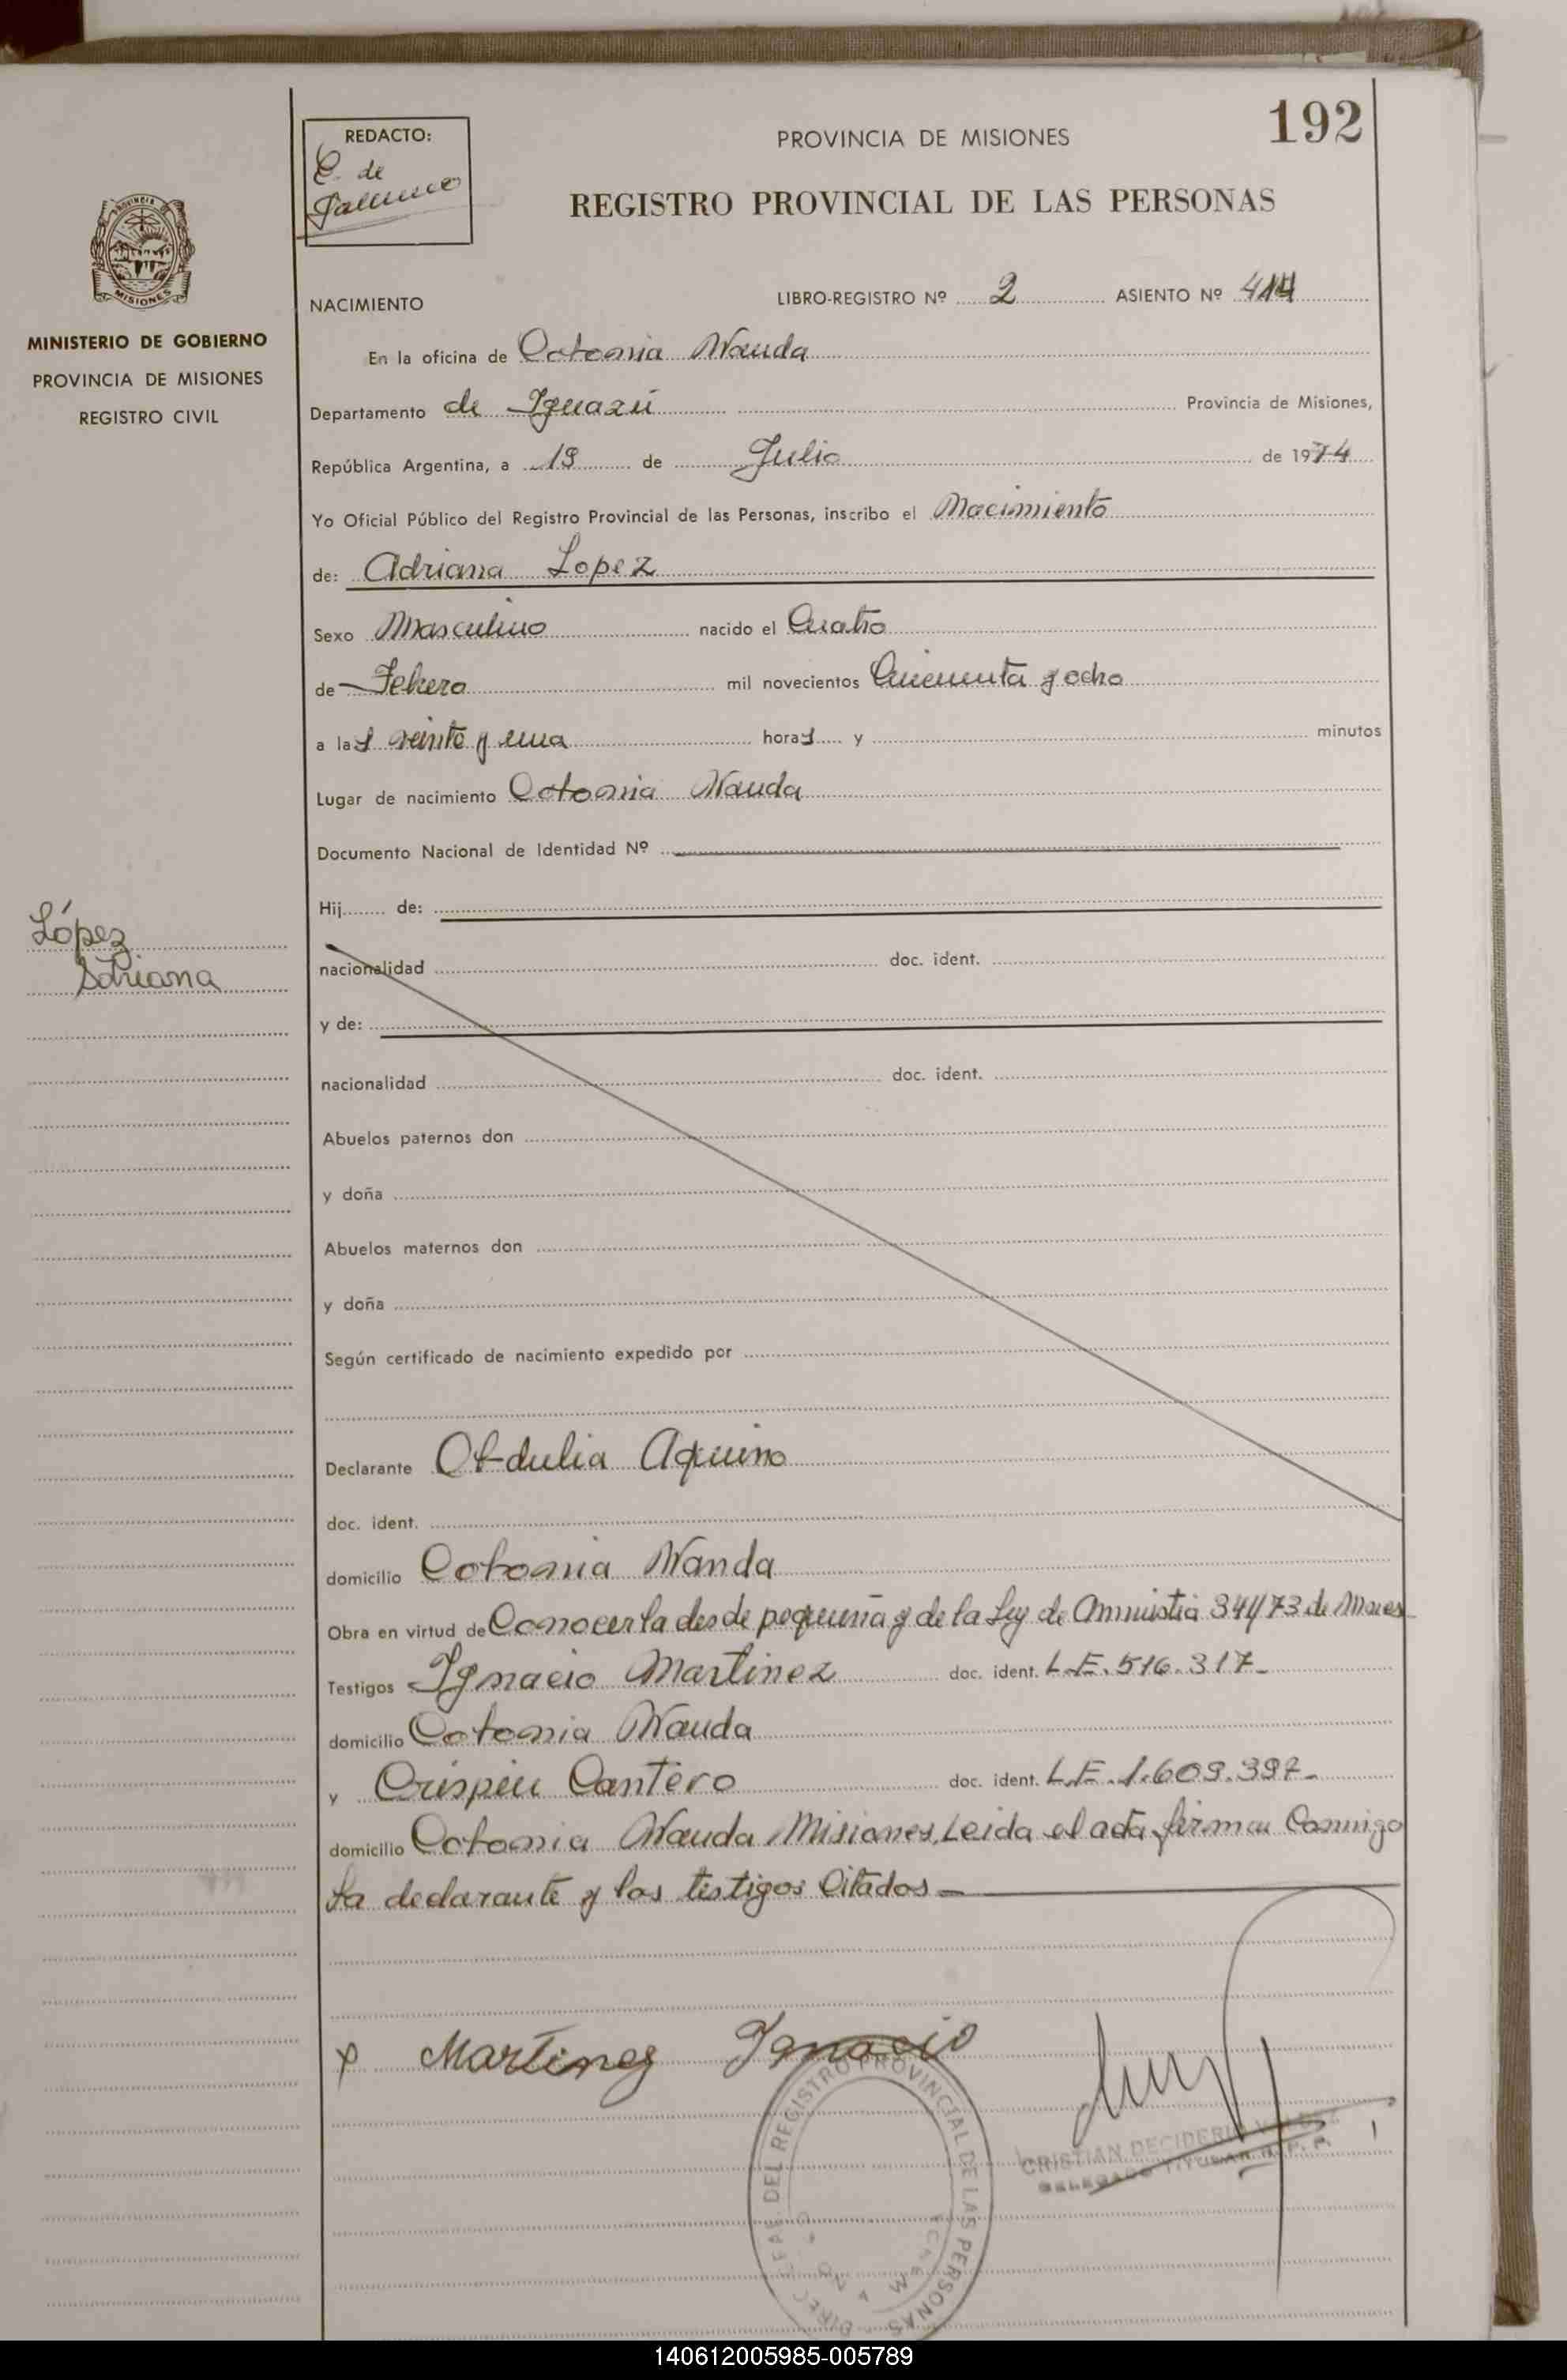 192
REDACTO:
C. de
PROVINCIA DE MISIONES
REGISTRO PROVINCIAL DE LAS PERSONAS
PROVINCIA
MISIONES
MINISTERIO DE GOBIERNO
PROVINCIA DE MISIONES
REGISTRO CIVIL
NACIMIENTO LIBRO-REGISTRO Nº 2 ASIENTO Nº
En la oficina de Colonia Wanda
Departamento de Iguazú Provincia de Misiones,
República Argentina, a 19 de Julio de 1974
Yo Oficial Público del Registro Provincial de las Personas, inscribo el Nacimiento
de: Adriana Lopez
Sexo Masculino nacido el Cuatro
de Febrero mil novecientos Cincuenta y ocho
a las veinte y una horas y minutos
Lugar de nacimiento Colonia Wanda
Documento Nacional de Identidad Nº
Hij de:
López
Adriana
nacionalidad doc. ident.
y de:
nacionalidad doc. ident.
Abuelos paternos don
y doña
Abuelos maternos don
y doña
Según certificado de nacimiento expedido por
Declarante Obdulia Aquino
doc. ident.
domicilio Colonia Wanda
Obra en virtud de Conocerla desde pequeña y de la Ley de Amnistia 341/73 de Mnes
Testigos Ignacio Martinez doc. ident. L.E. 516.317-
domicilio Colonia Wanda
y Crispin Cantero doc. ident. L.E. 1.609.397-
domicilio Colonia Wanda Misiones, Leida el acta firman Conmigo
La declarante y los testigos Citados
Martinez Ignacio
DIREC. GRAL. DEL REGISTRO PROVINCIAL DE LAS PERSONAS
CRISTIAN DECIDERIO
DELEGADO TITULAR R. P. P.
140612005985-005789